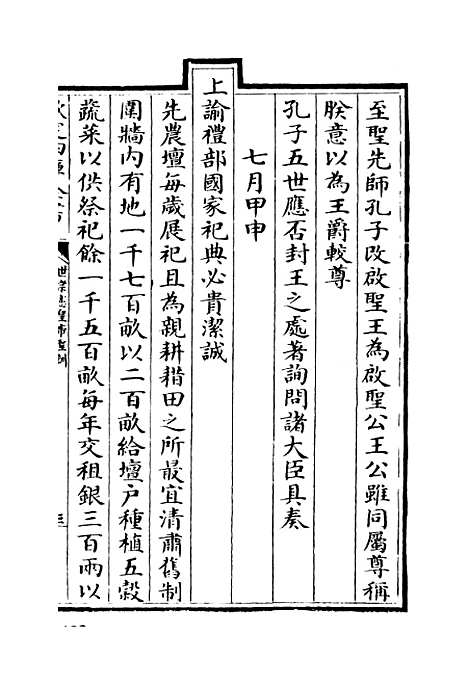 至聖先師孔子改啟聖王為啟聖公王公雖同屬尊稱
朕意以為王爵較尊
孔子五世應否封王之處著詢問諸大臣具奏
七月甲申
上諭禮部國家祀典必貴潔誠
先農壇每歲展祀且為親耕耤田之所最宜清肅舊制
圍牆内有地一千七百畝以二百畝給壇户種植五穀
蔬菜以供祭祀餘一千五百畝每年交租銀三百兩以